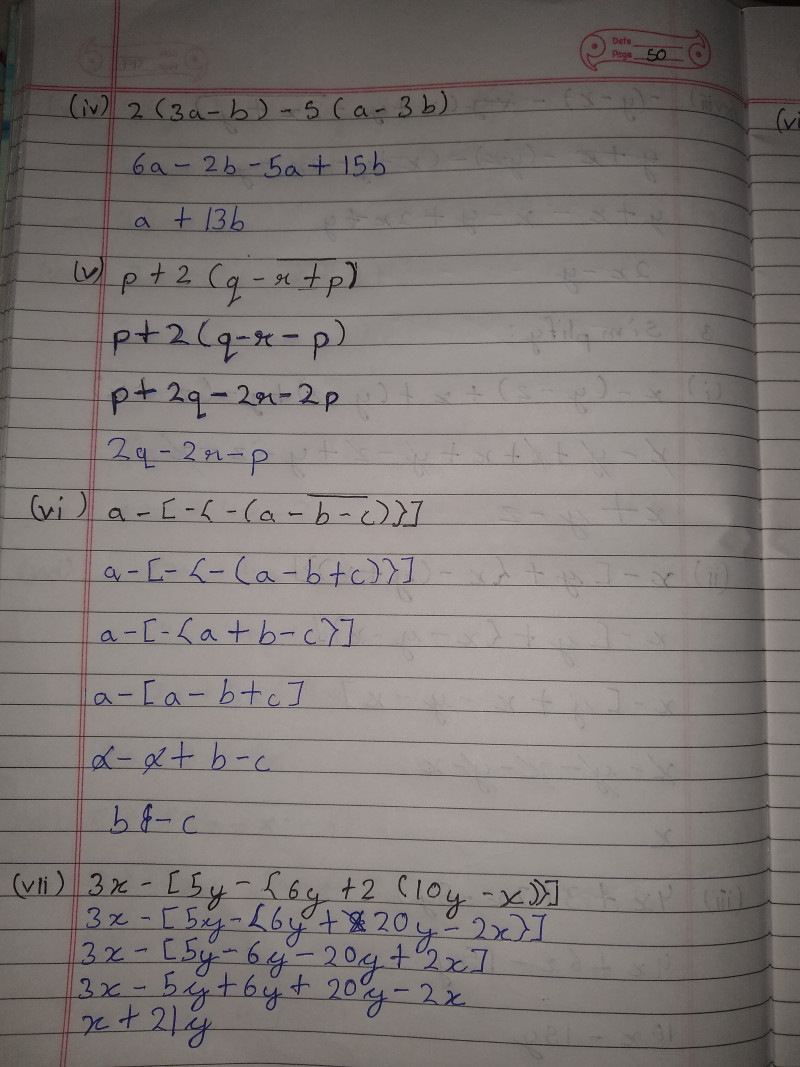 Date
Page 50
(iv) 2(3a-b)-5(a-3b)
6a-2b-5a+15b
a+13b
(v) p+2(q-r̅+̅p̅)
p+2(q-r-p)
p+2q-2r-2p
2q-2r-p
(vi) a-[-{-(a-b̅-̅c̅)}]
a-[-{-(a-b+c)}]
a-[-{a+b-c}]
a-[a-b+c]
a-a+b-c
b-c
(vii) 3x-[5y-{6y+2(10y-x)}]
3x-[5y-{6y+20y-2x}]
3x-[5y-6y-20y+2x]
3x-5y+6y+20y-2x
x+21y
(vi